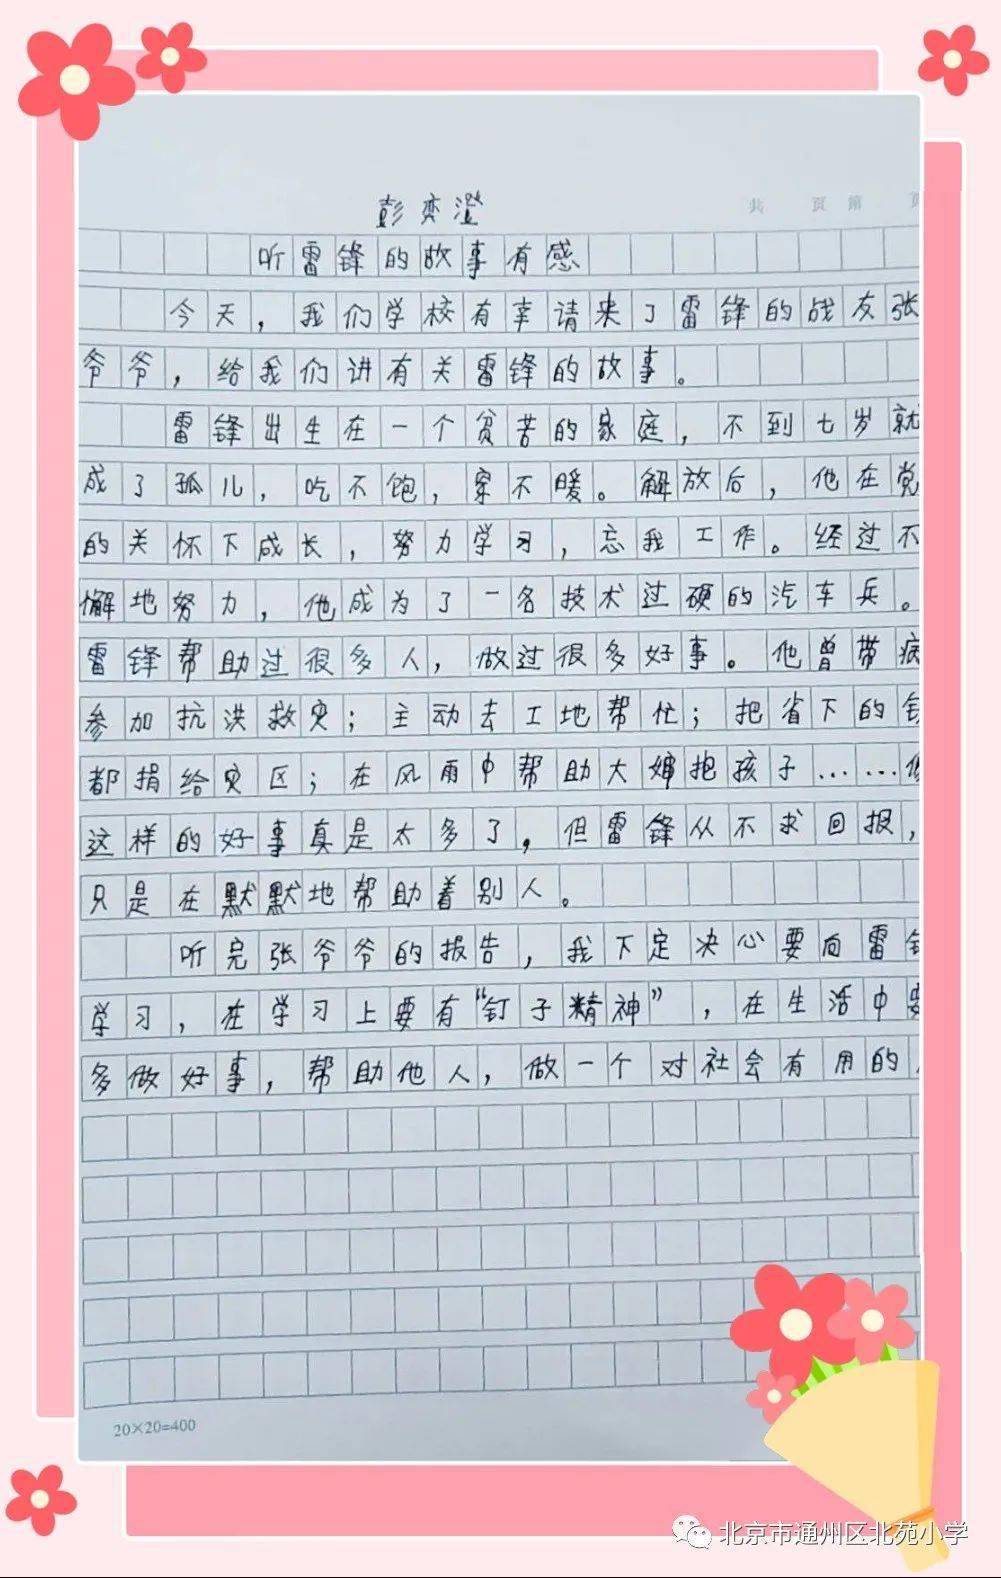 彭奕澄
共 页 第 页
听雷锋的故事有感
今天，我们学校有幸请来了雷锋的战友张
爷爷，给我们讲有关雷锋的故事。
雷锋出生在一个贫苦的家庭，不到七岁就
成了孤儿，吃不饱，穿不暖。解放后，他在党
的关怀下成长，努力学习，忘我工作。经过不
懈地努力，他成为了一名技术过硬的汽车兵。
雷锋帮助过很多人，做过很多好事。他曾带病
参加抗洪救灾；主动去工地帮忙；把省下的钱
都捐给灾区；在风雨中帮助大婶抱孩子……像
这样的好事真是太多了，但雷锋从不求回报，
只是在默默地帮助着别人。
听完张爷爷的报告，我下定决心要向雷锋
学习，在学习上要有“钉子精神”，在生活中要
多做好事，帮助他人，做一个对社会有用的
20×20=400
北京市通州区北苑小学